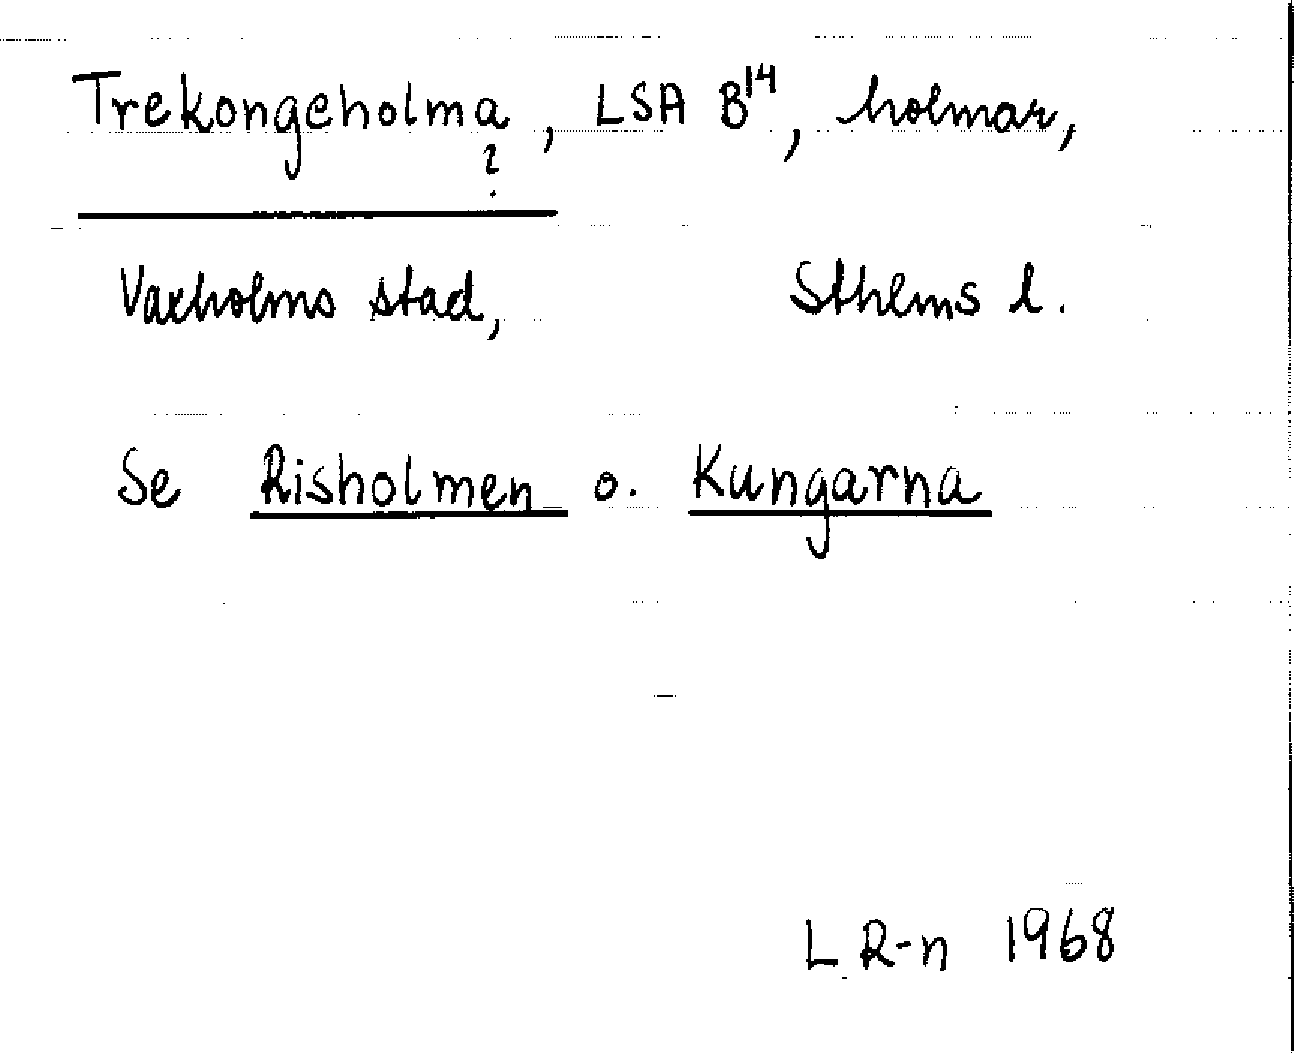 Trekongeholma, LSA B14, holmar,
?
Vaxholms stad, Sthlms l.
Se Risholmen o. Kungarna
L R-n 1968